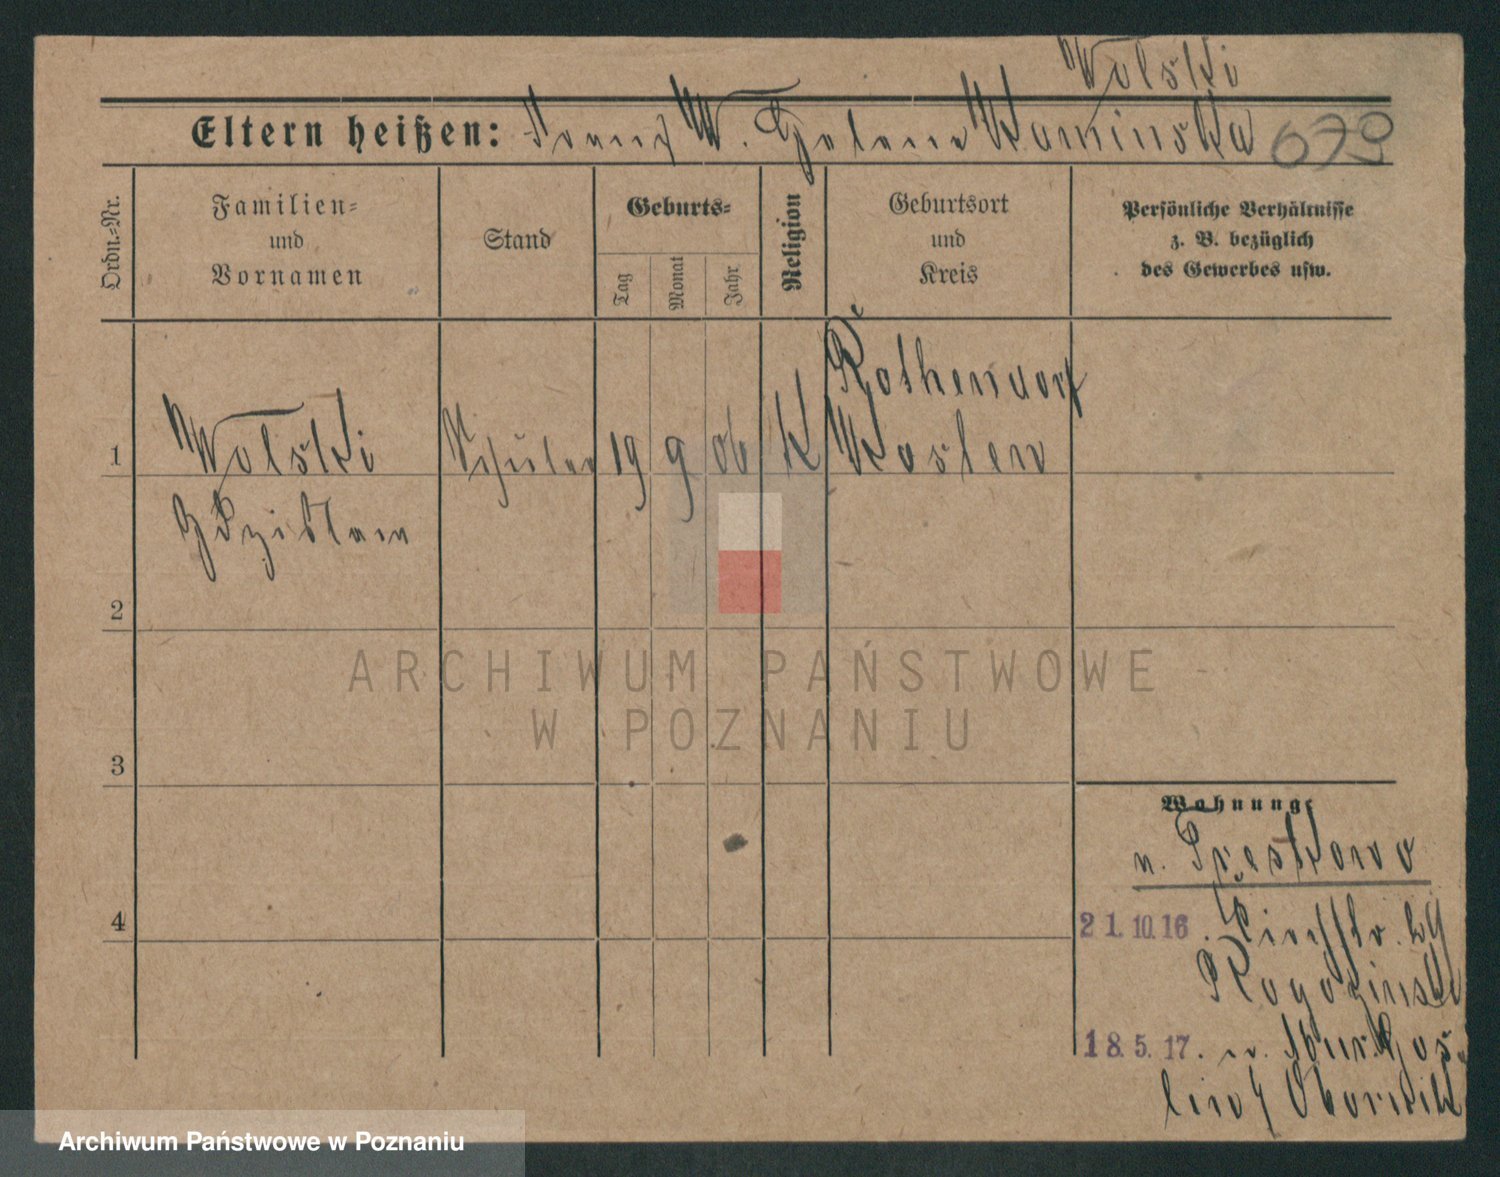 Wolski
Eltern heißen: Franz W. Helene Kaminska
Ordn.-Nr.
Familien-
und
Vornamen
Stand
Geburts-
Tag
Monat
Jahr
Religion
Geburtsort
und
Kreis
Persönliche Verhältnisse
z. B. bezüglich
des Gewerbes usw.
Rothendorf
1 Wolski Schüler 19 9 06 K Kosten
Zdzislaw
2
ARCHIWUM PAŃSTWOWE
W POZNANIU
3
Wohnung:
n.
4
21.10.16.
18.5.17. n. Mur. Gos-
lin Obornik
Archiwum Państwowe w Poznaniu